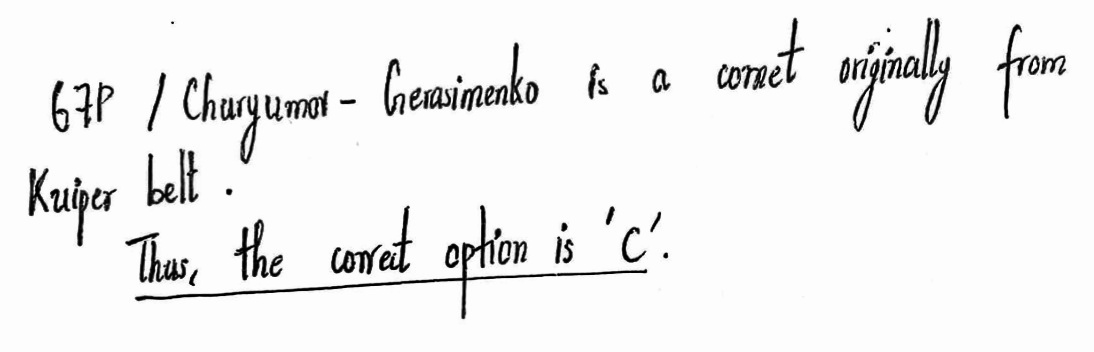 67P / Churyumov - Gerasimenko is a comet originally from
Kuiper belt .
Thus, the correct option is 'C'.